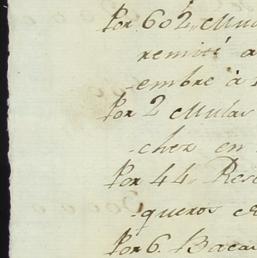 Por 602 Mu
remiti a
embre à
Por 2 Mulas
chez en
Por 44 Res
queros
Por 6. Bacas